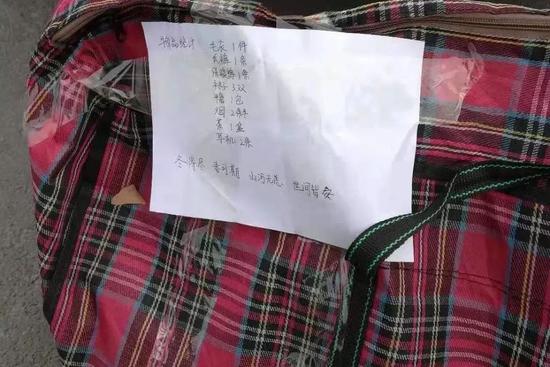 物品统计 毛衣1件
长裤1条
保暖裤1条
袜子3双
糖1包
烟2条
茶1盒
耳机2条
冬将尽 春可期 山河无恙 世间皆安